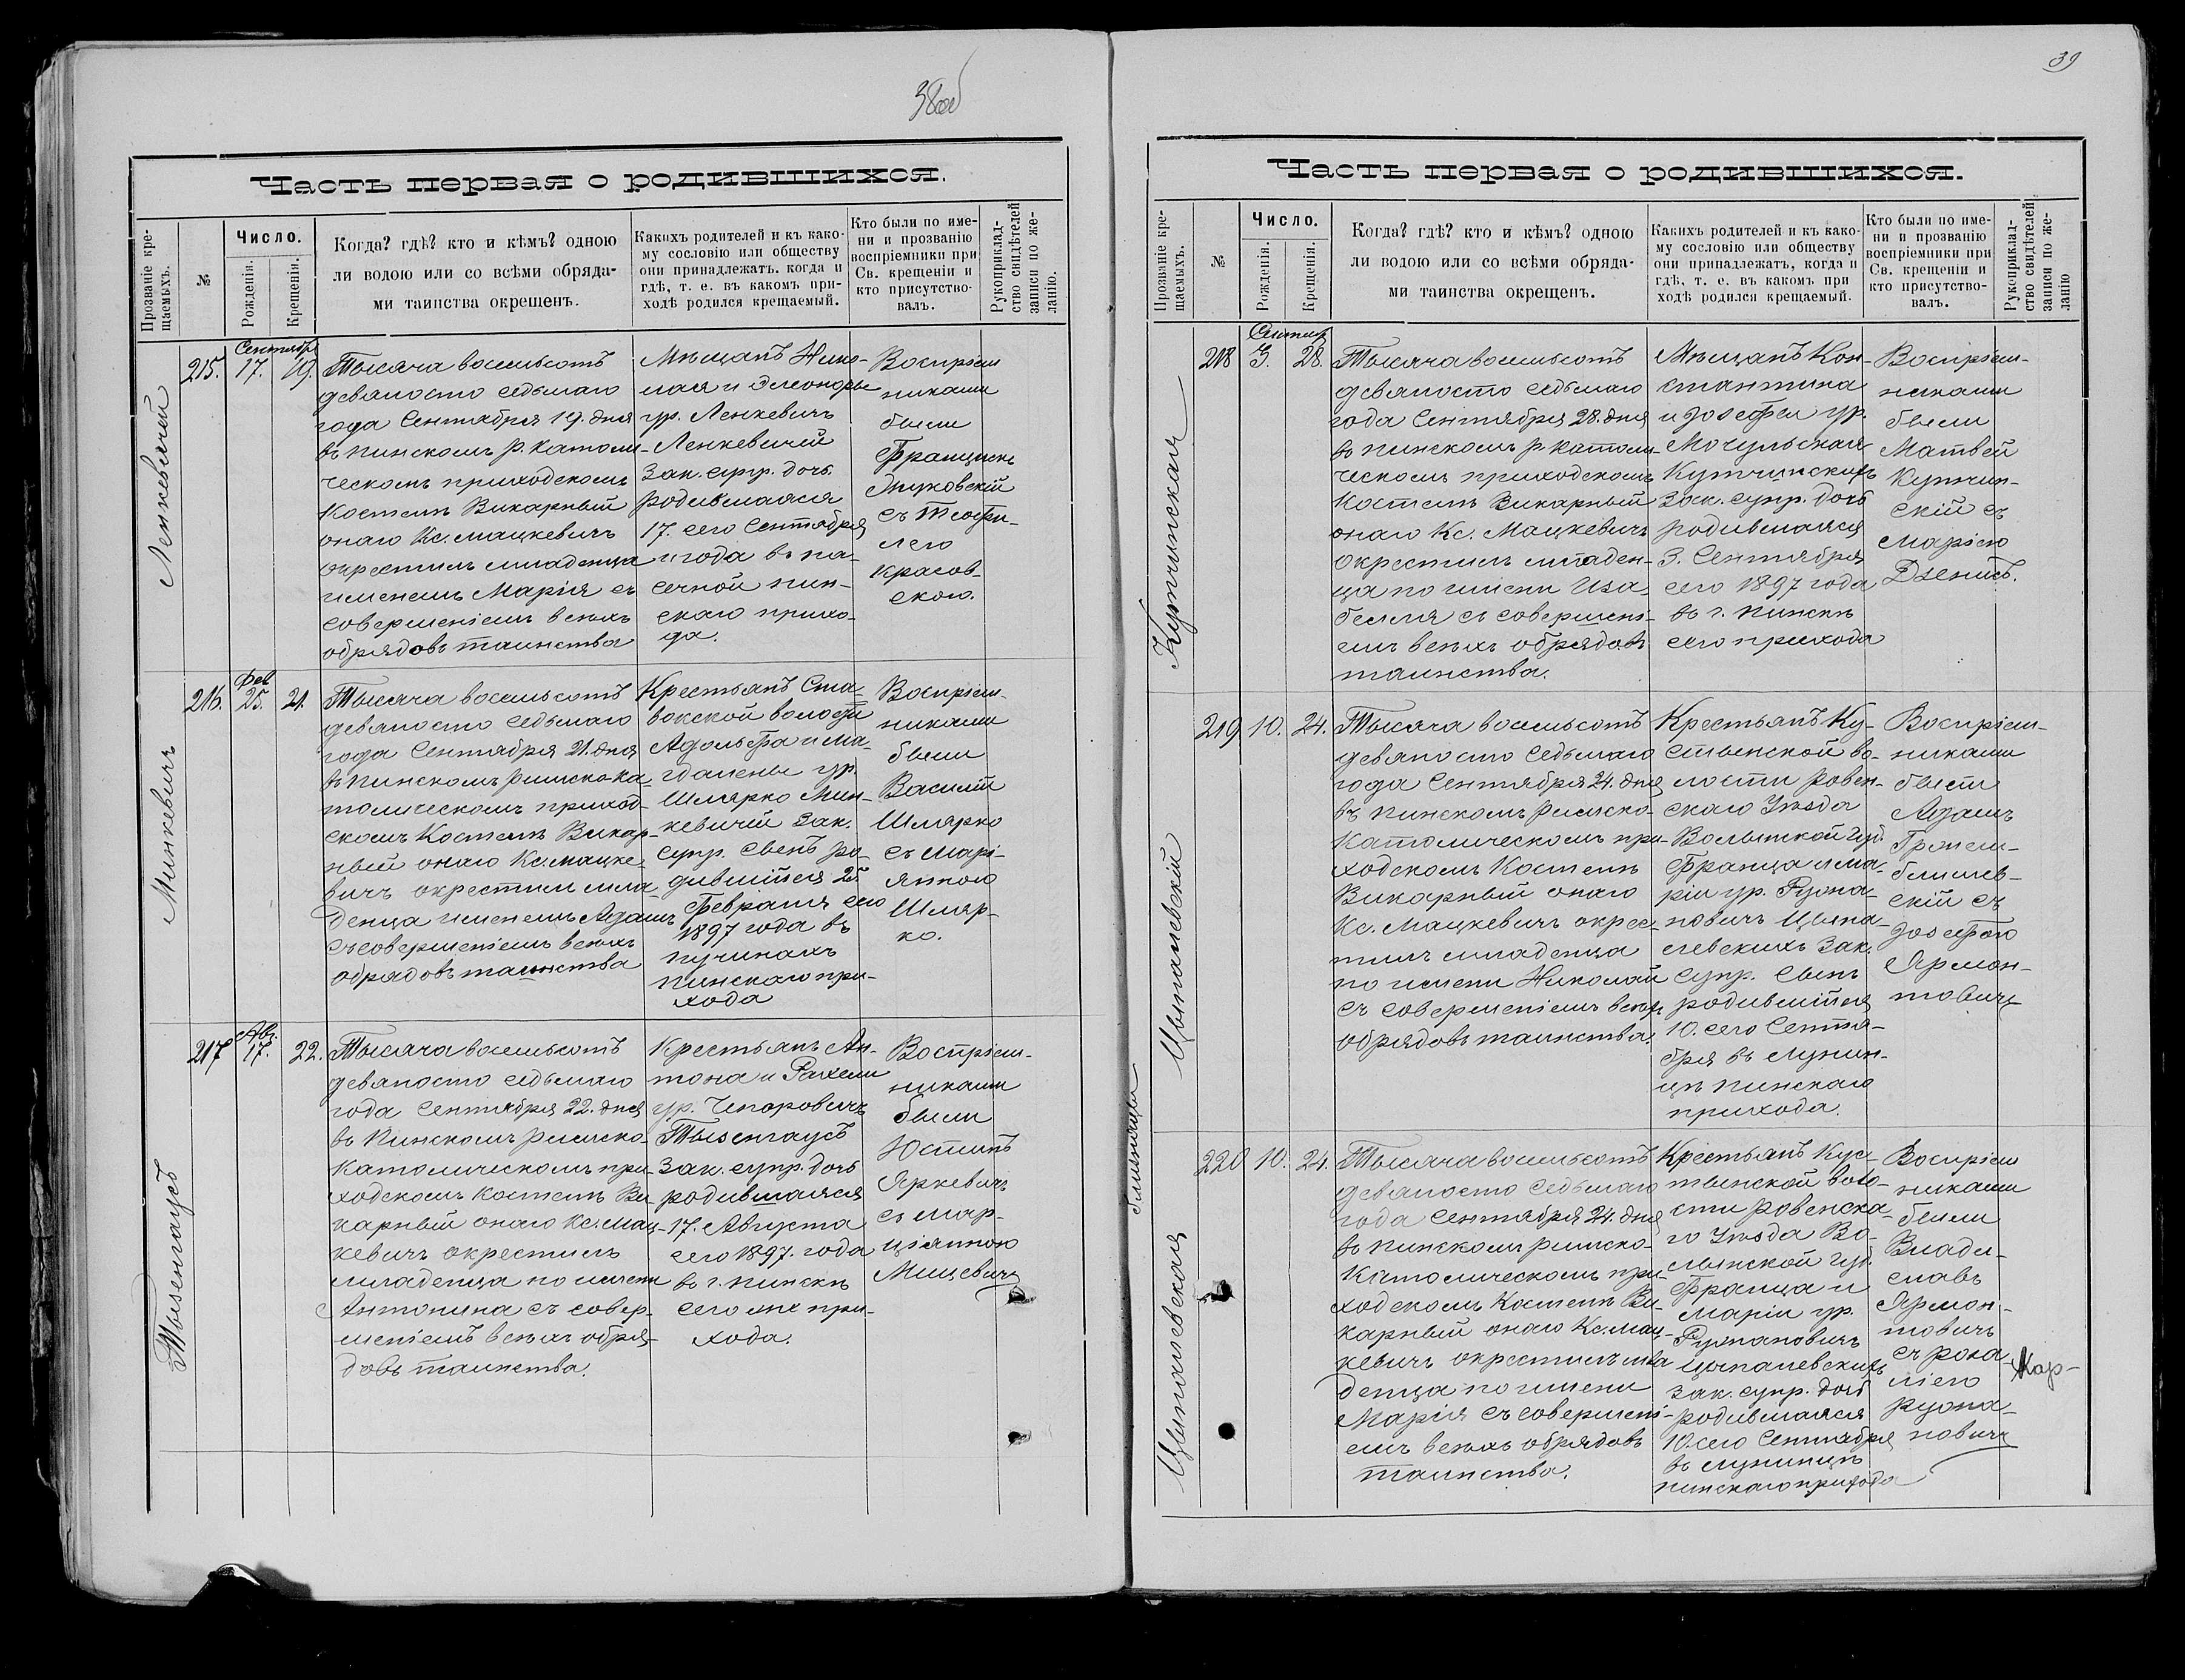 38об
Часть первая о родившихся.
Прозваніе кре-
щаемыхъ.
№
Число.
Рожденія.
Крещенія.
Когда? гдѣ? кто и кѣмъ? одною
ли водою или со всѣми обряда-
ми таинства окрещенъ.
Какихъ родителей и къ како-
му сословію или обществу
они принадлежатъ. когда и
гдѣ, т. е. въ какомъ при-
ходѣ родился крещаемый.
Кто были по име-
ни и прозванію
воспріемники при
Св. крещеніи и
кто присутство-
валъ.
Рукоприклад-
ство свидѣтелей
записи по же-
ланію.
Ленкевичъ
215.
Сентября
17.
19.
Тысяча восемьсотъ
девяносто седьмаго
года Сентября 19. дня
въ Пинскомъ р. католи-
ческомъ приходскомъ
Костелѣ Викарный
онаго Кс. Мацкевичъ
окрестилъ младенца
именемъ Марія съ
совершеніемъ всѣхъ
обрядовъ таинства
Мѣщанъ Нико-
лая и Элеоноры
ур. Ленкевичъ
Ленкевичей
Зак. супр. дочь
родившаяся
17. сего Сентября
и года въ па-
сечной Пин-
скаго прихо-
да.
Воспріем
никами
были
Францискъ
съ Теофи-
лею
Красов-
скою.
Минкевичъ
216.
Фев
25.
21.
Тысяча восемьсотъ
девяносто седьмаго
года Сентября 21. дня
въ Пинскомъ римскока
толическомъ приход-
скомъ Костелѣ Викар-
ный онаго Кс. Мацке
вичъ окрестилъ мла-
денца именемъ Адамъ
съ совершеніемъ всѣхъ
обрядовъ таинства
Крестьянъ Ста-
вокской волости
Адольфа и Ма-
гдалены ур.
Шлярко Мин-
кевичей Зак.
супр. сынъ ро-
дившійся 25.
Февраля сего
1897 года въ
пучинахъ
Пинскаго при-
хода
Воспріем-
никами
были
Василій
Шлярко
съ Марі-
янною
Шляр-
ко.
Тызенгаусъ
217
Авг.
17.
22.
Тысяча восемьсотъ
девяносто седьмаго
года Сентября 22. дня
въ Пинскомъ римско-
Католическомъ при-
ходскомъ Костелѣ Ви
карный онаго Кс. Мац-
кевичъ окрестилъ
младенца по имени
Антонина съ совер-
шеніемъ всѣхъ обря-
довъ таинства.
Крестьянъ Ан-
тона и Рахели
ур. Чепоровичъ
Тызенгаусъ
Зак. супр. дочь
родившаяся
17. Августа
сего 1897. года
въ г. Пинскѣ
сего же при-
хода.
Воспріем-
никами
были
Юстинъ
Яркевичъ
съ Мар-
ціянною
Мицевичъ
39
Часть первая о родившихся.
Прозваніе кре-
щаемыхъ.
№
Число.
Рожденія.
Крещенія.
Когда? гдѣ? кто и кѣмъ? одною
ли водою или со всѣми обряда-
ми таинства окрещенъ.
Какихъ родителей и къ како-
му сословію или обществу
они принадлежатъ, когда и
гдѣ, т. е. въ какомъ при
ходѣ родился крещаемый.
Кто были по име-
ни и прозванію
воспріемники при
Св. крещеніи и
кто присутство-
валъ.
Рукоприклад-
ство свидѣтелей
записи по же-
ланію
Кутчинская
218
Сентяб
3.
28.
Тысяча восемьсотъ
девяносто седьмаго
года Сентября 28. дня
въ Пинскомъ р. католи-
ческомъ приходскомъ
Костелѣ Викарный
онаго Кс. Мацкевичъ
окрестилъ младен-
ца по имени Иза
белля съ совершені-
емъ всѣхъ обрядовъ
таинства.
Мѣщанъ Кон-
стантина
и Іозефы ур.
Мочульская
Кутчинскихъ
Зак. супр. дочь
родившаяся
3. Сентября
сего 1897 года
въ г. Пинскѣ
сего прихода
Воспріем-
никами
были
Матвей
Кутчин-
скій съ
Маріею
Дзенисъ.
Цыпалевскій
219
10.
24.
Тысяча восемьсотъ
девяносто седьмаго
года Сентября 24. дня
въ Пинскомъ римско
Католическомъ при-
ходскомъ Костелѣ
Викарный онаго
Кс. Мацкевичъ окрес-
тилъ младенца
по имени Николай
съ совершеніемъ всѣхъ
обрядовъ таинства.
Крестьянъ Ку-
стынской во-
лости Ровен-
скаго Уѣзда
Волынской Губ.
Франца и Ма-
ріи ур. Рука-
новичъ Цыпа-
левскихъ Зак.
супр. сынъ
родившійся
10. сего Сентя-
бря въ Лунин-
цѣ Пинскаго
прихода.
Воспріем-
никами
были
Адамъ
скій съ
Іозефою
Ярмон-
товичъ
близнецы
Цыпалевская
220
10.
24.
Тысяча восемьсотъ
девяносто седьмаго
года Сентября 24. дня
въ Пинскомъ римско-
Католическомъ при-
ходскомъ Костелѣ Ви-
карный онаго Кс. Мац-
кевичъ окрестилъ мла
денца по имени
Марія съ совершені-
емъ всѣхъ обрядовъ
таинства.
Крестьянъ Кус-
тынской воло-
сти Ровенска-
го Уѣзда Во-
лынской губ.
Франца и
Маріи ур.
Цыпалевскихъ
Зак. супр. дочь
родившаяся
10. сего Сентября
въ Лунинцѣ
Пинскаго прихода
Воспріем
никами
были
Влади-
славъ
Ярмон-
товичъ
съ Роза-
ліею
новичъ